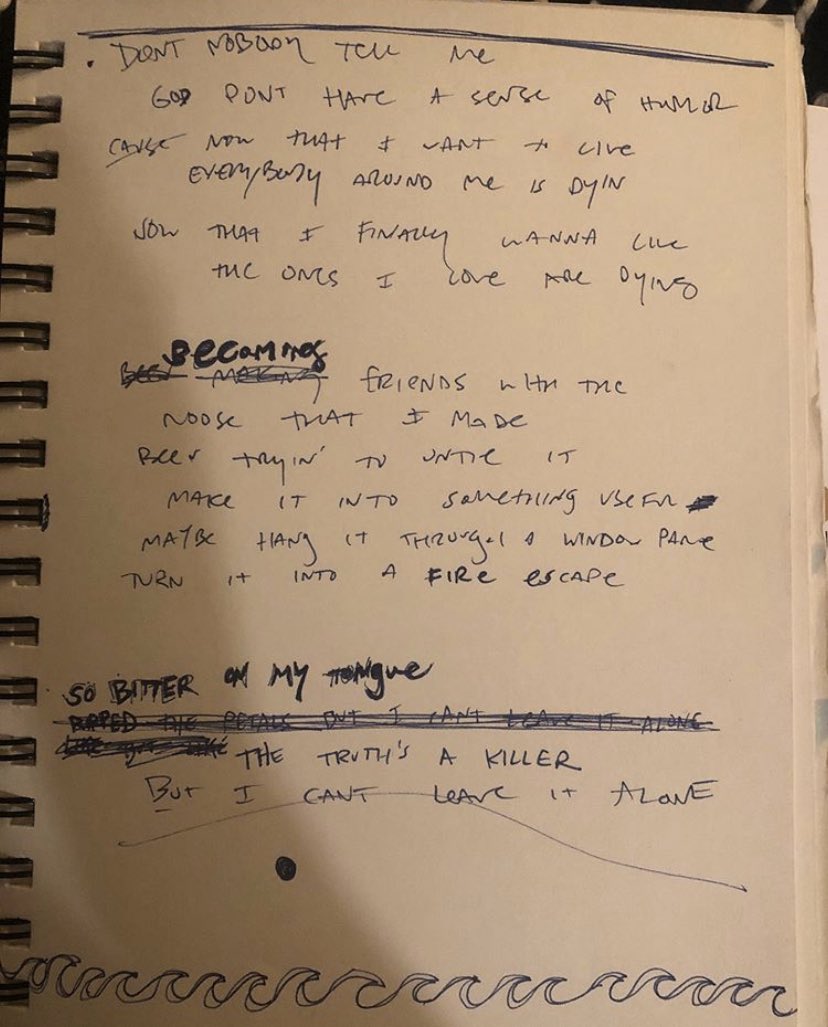 . DONT NOBODY TELL ME
GOD DONT HAVE A SENSE OF HUMOR
CAUSE NOW THAT I WANT to LIVE
EVERYBODY AROUND ME IS DYIN
NOW THAT I FINALLY WANNA LIVE
THE ONES I LOVE ARE DYING
BECOMING
BEEN MAKING FRIENDS WITH THE
NOOSE THAT I MADE
BEEN TRYIN' TO UNTIE IT
MAKE IT INTO SOMETHING USEFUL
MAYBE HANG IT THROUGH A WINDOW PANE
TURN IT INTO A FIRE ESCAPE
SO BITTER ON MY TONGUE
RIPPED THE PETALS BUT I CANT LEAVE IT ALONE
THE TRUTH'S A KILLER
BUT I CANT LEAVE IT ALONE